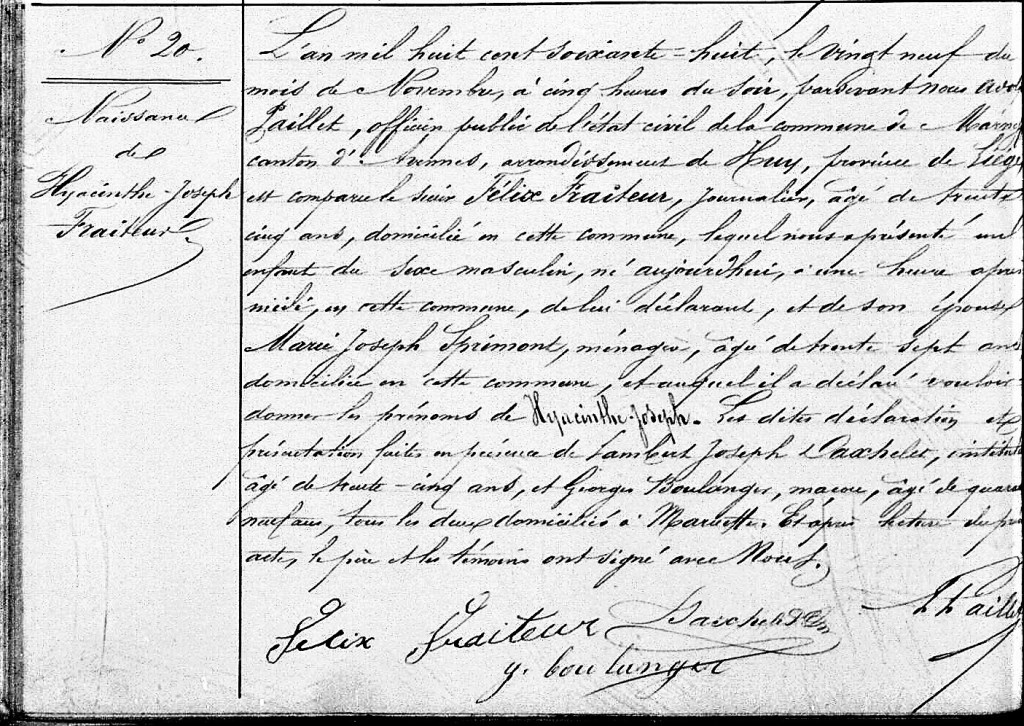 N° 20.
Naissance
de
Hyacinthe-Joseph
Fraiteur
L'an mil huit cent soixante-huit, le vingt neuf du
mois de Novembre, à cinq heures du soir, pardevant nous
Paillet, officier public de l'état civil de la commune de
canton d'Avennes, arrondissement de Huy, province de Liége
est comparu le sieur Félix Fraiteur, journalier, âgé de trente
cinq ans, domicilié en cette commune, lequel nous a présenté un
enfant du sexe masculin, né aujourd'hui, à une heure après
midi, en cette commune, de lui déclarant, et de son épouse
Marie Joseph Sprimont, ménagère, âgée de trente sept ans
domiciliée en cette commune, et auquel il a déclaré vouloir
donner les prénoms de Hyacinthe-Joseph. Les dites déclaration et
présentation faites en présence de Lambert Joseph Daxhelet,
âgé de trente-cinq ans, et Georges Boulanger, maçon, âgé de
neuf ans, tous les deux domiciliés à Et après lecture du
acte, le père et les témoins ont signé avec Nous.
Felix Fraiteur Daxhelet Paillet
g. boulanger